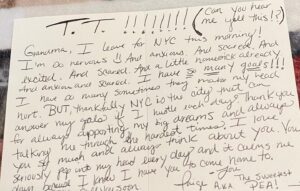 T. T. !!!!!!! (Can you hear
me yell this!?)
Grandma, I leave for NYC this morning!
I'm so nervous!! And anxious. And scared. And
excited. And scared. And a little homesick already
And anxious and scared. I have so many goals!!!
I have so many sometimes they make my head
hurt. BUT, thankfully NYC is the city that'll
answer my goals if I hustle each day. Thank you
for always supporting my big dreams and always
talking me through the hardest times. I love
you so much and always think about you. You
seriously pop into my head every day and it calms me
down because I know I have you to come home to.
soon
Huge
The Sweetest
PEA!